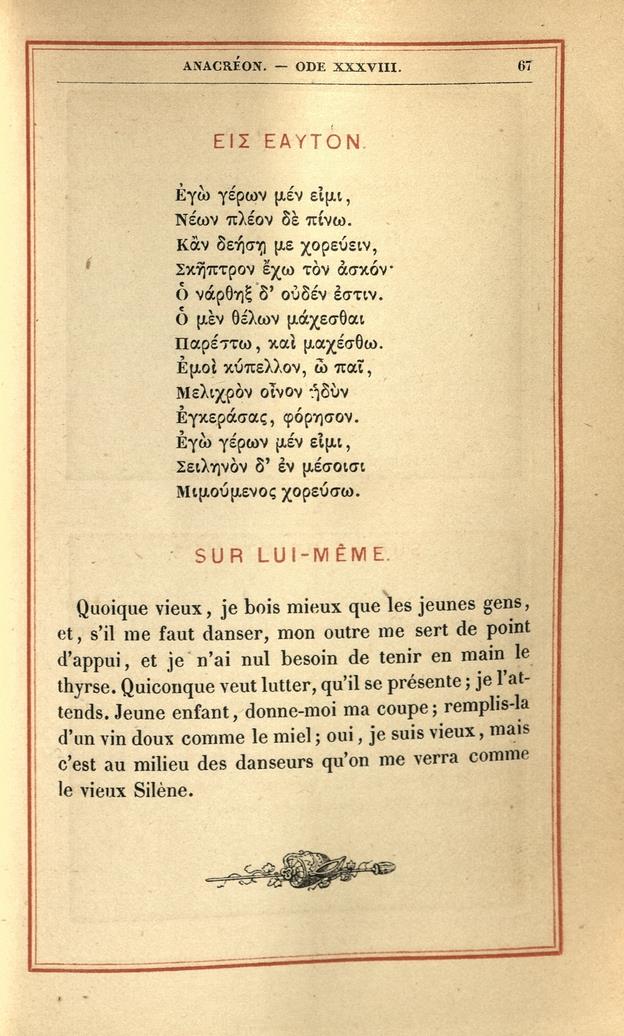 ANACRÉON. — ODE XXXVIII.
67
ΕΙΣ ΕΑΥΤΟΝ.
Ἐγὼ γέρων μέν εἰμι,
Νέων πλέον δὲ πίνω.
Κἂν δεήσῃ με χορεύειν,
Σκῆπτρον ἔχω τὸν ἀσκόν·
Ὁ νάρθηξ δ' οὐδέν ἐστιν.
Ὁ μὲν θέλων μάχεσθαι
Παρέστω, καὶ μαχέσθω.
Ἐμοὶ κύπελλον, ὦ παῖ,
Μελιχρὸν οἶνον ἡδὺν
Ἐγκεράσας, φόρησον.
Ἐγὼ γέρων μέν εἰμι,
Σειληνὸν δ' ἐν μέσοισι
Μιμούμενος χορεύσω.
SUR LUI-MÊME.
Quoique vieux, je bois mieux que les jeunes gens,
et, s'il me faut danser, mon outre me sert de point
d'appui, et je n'ai nul besoin de tenir en main le
thyrse. Quiconque veut lutter, qu'il se présente; je l'at-
tends. Jeune enfant, donne-moi ma coupe; remplis-la
d'un vin doux comme le miel; oui, je suis vieux, mais
c'est au milieu des danseurs qu'on me verra comme
le vieux Silène.